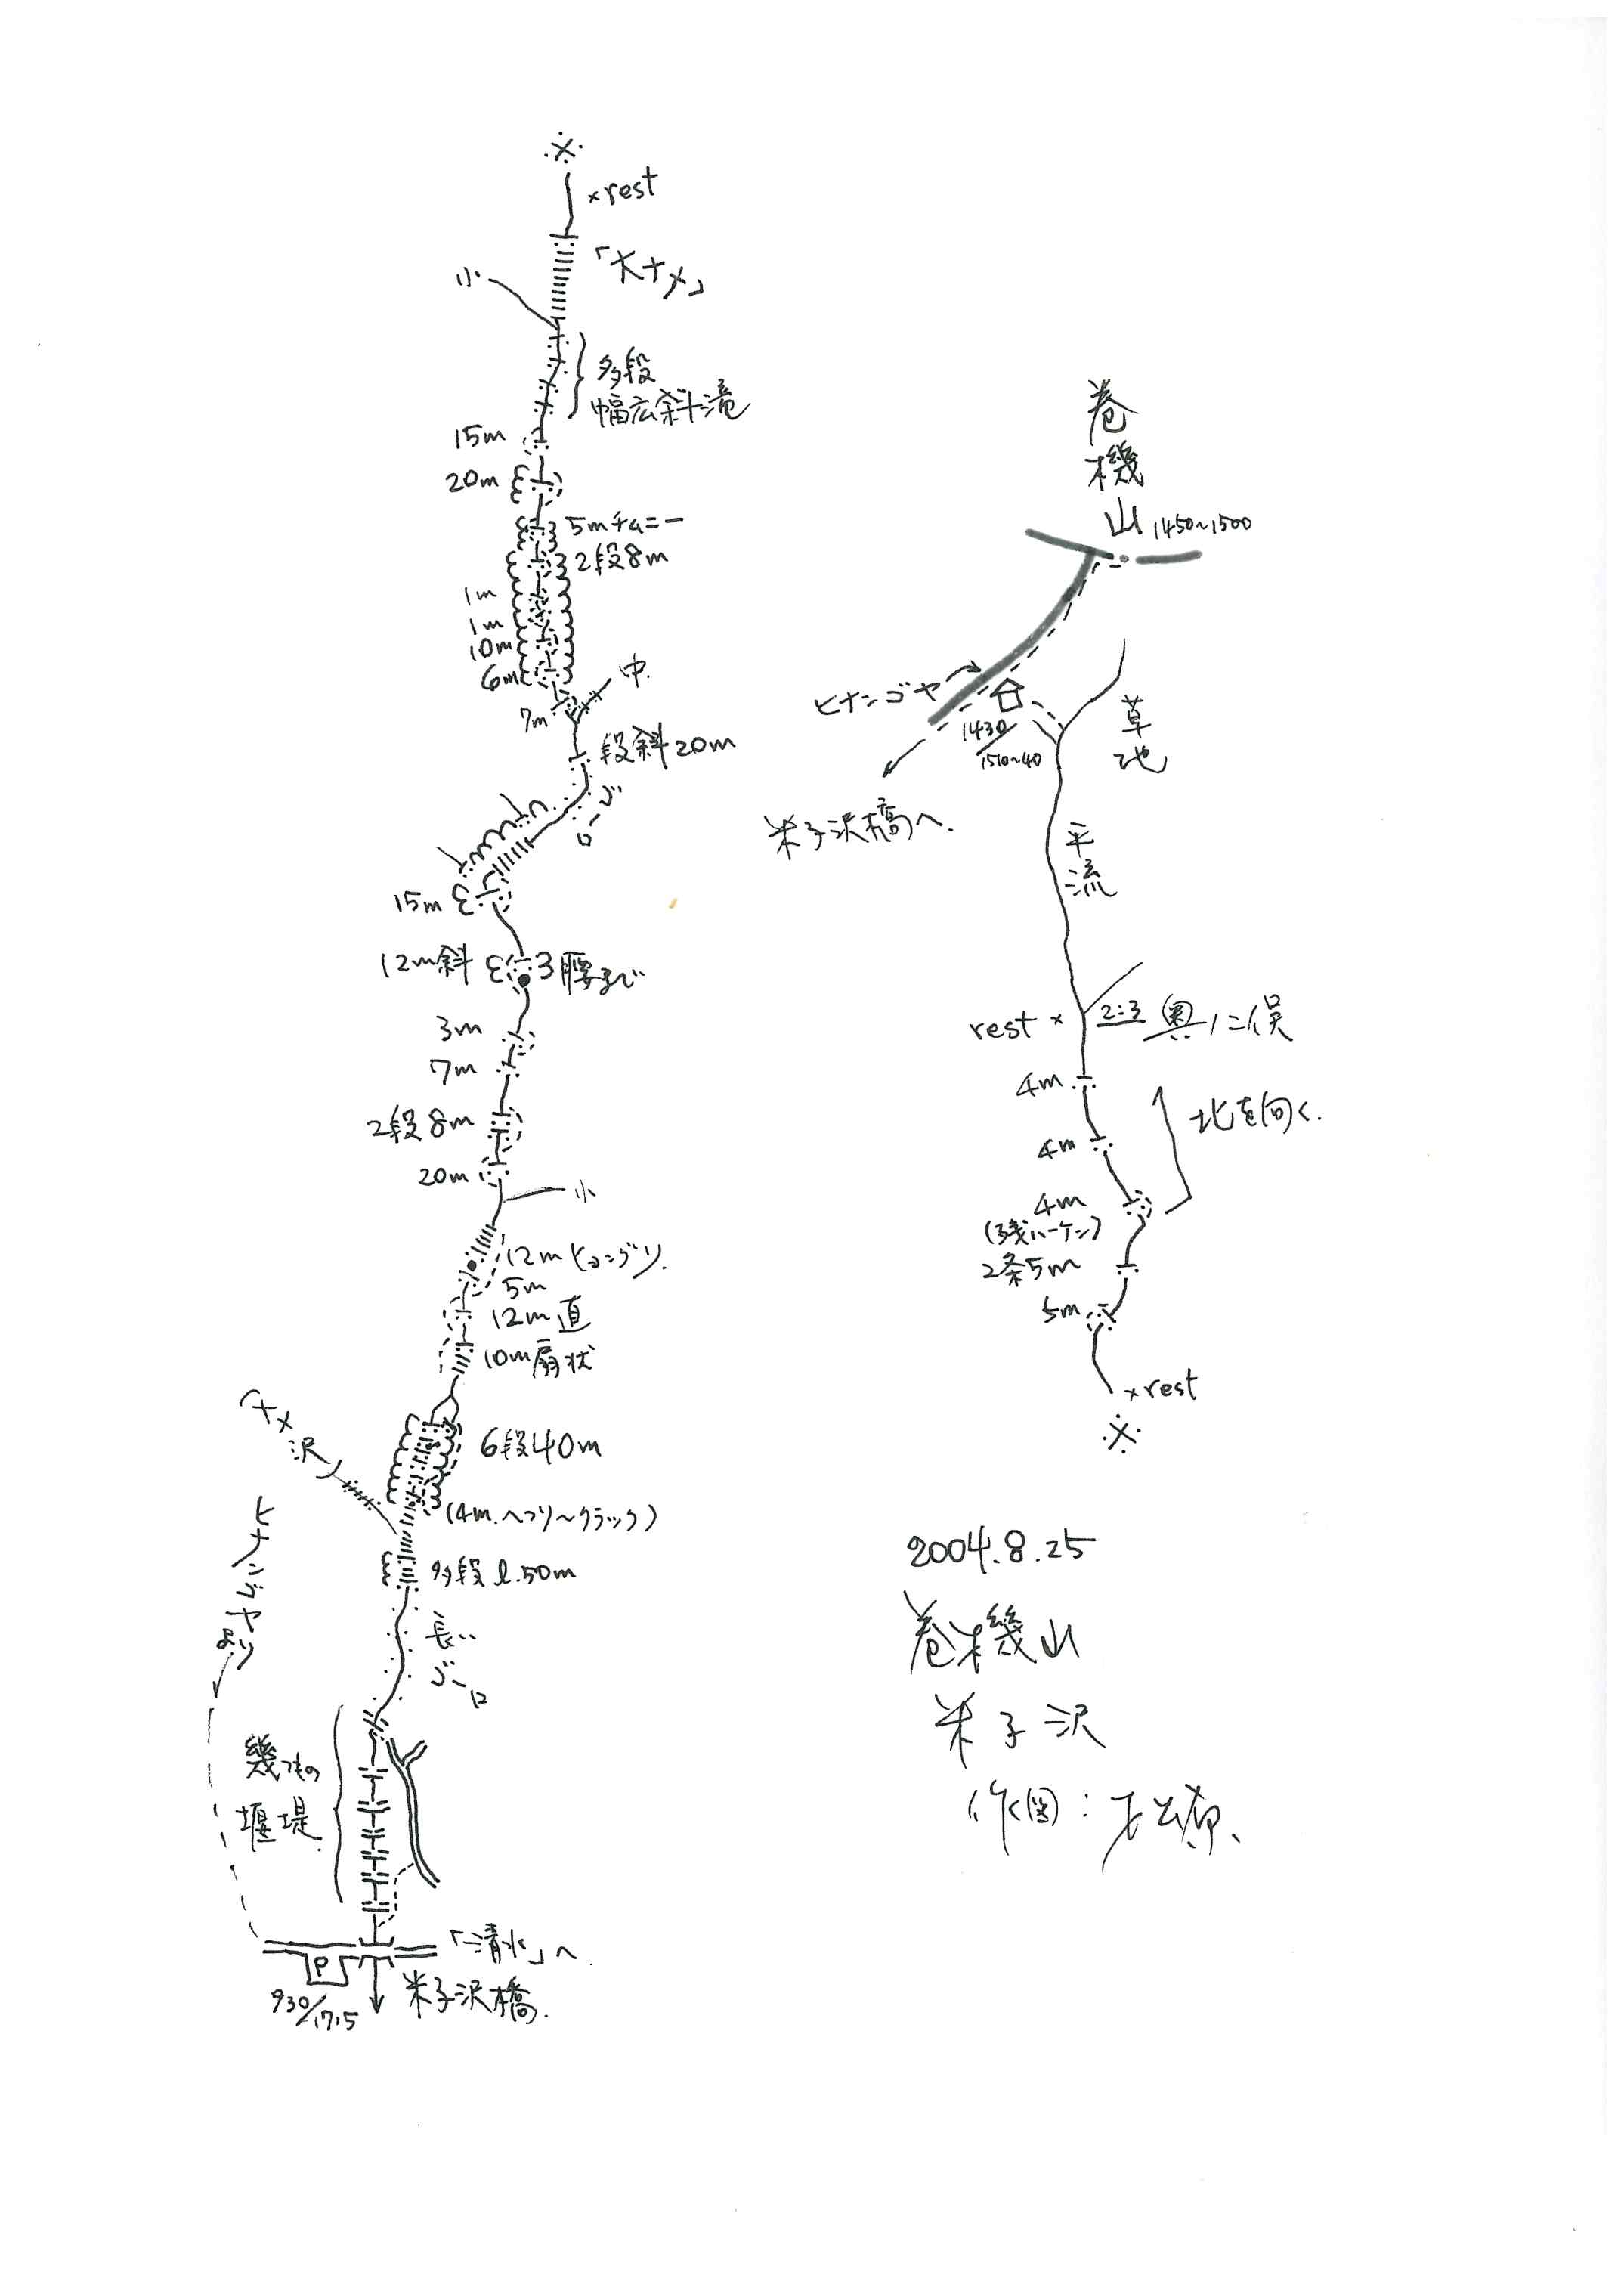 ※
×rest
「大ナメ」
小
多段
幅広斜滝
15m
20m
5mチムニー
2段8m
1m
1m
10m
6m
中.
7m
段斜20m
ゴーロ
15m
12m斜
腰まで
3m
7m
2段8m
20m
小
12mヒョングリ.
5m
12m直
10m扇状
(ナメ沢)
6段40m
(4m.ヘツリ〜クラック)
多段l.50m
長い
ゴーロ
ヒナンゴヤより
幾つもの
堰堤.
「清水」へ.
P
930/1715
米子沢橋.
巻機山
1450~1500
ヒナンゴヤ
1430/1510~40
草地
米子沢橋へ.
平流
rest ×
2:3 奥ノ二俣
4m
北を向く.
4m
4m
(残ハーケン)
2条5m
5m
×rest
※
2004.8.25
巻機山
米子沢
作図:松原、